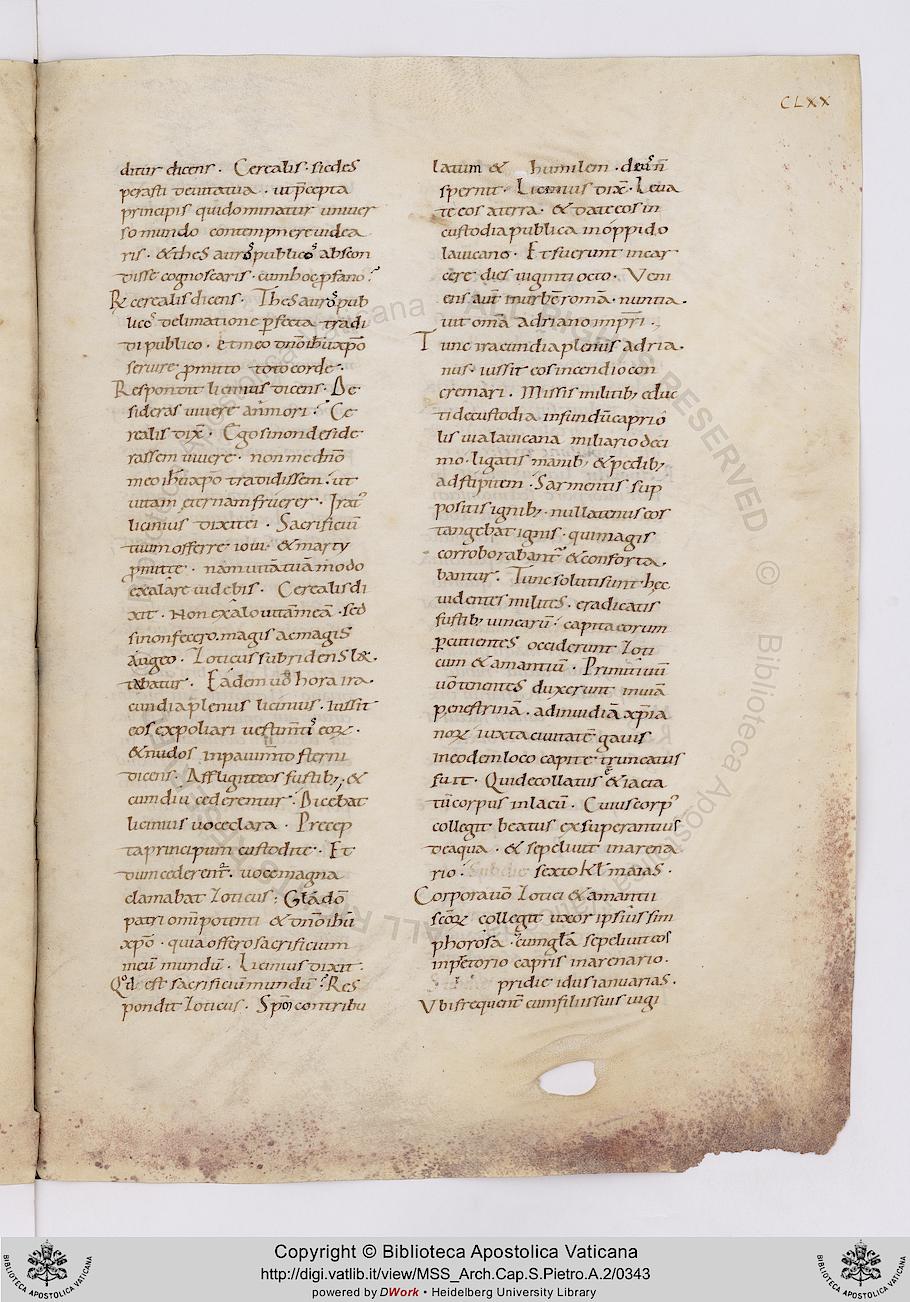 CLXX
ditur dicens. Cerealis. sicdes
perasti deuitatua. ut p̄cepta
principis quidominatur uniuer
so mundo contempnere uidea
ris. & thesauros publicos abscon
disse cognoscaris. cum hoc p̄fano?
R̄ cerealis dicens. Thesauros pub
licos delimatione ꝑfecta tradi
di publico. et meo dn̄o ih̄u xp̄o
seruire p̄mitto toto corde.
Respondit licinius dicens. De
sideras uiuere an mori? Ce
realis dix̄. Ego si non deside
rassem uiuere. non me dn̄o
meo ih̄u xp̄o tradidissem. ut
uitam eternam fruerer. Irat᷒
licinius dixit ei. Sacrificiū
tuum offerre ioui. & marty
p̄mitte. nam uitā tuā modo
exalare uidebis. Cerealis di
xit. Non exalo uitā meā. sed
si non fecero. magis ac magis
angeo. Ioticus subridens læ.
tabatur. Eadem u̅o hora ira.
cundia plenus licinius. iussit
eos expoliari uestim̄tis eoꝝ.
& nudos in pauim̄to sterni
dicens. Affligite eos fustib;. &
cum diu cederentur. Dicebat
licinius uoce clara. Precep
ta principum custodite. Et
dum cederent᷒. uoce magna
clamabat Ioticus; Glā dō
patri omīpotenti & dn̄o ih̄u
xp̄o. quia offero sacrificium
meū mundū. Licinius dixit.
Qd̊ est sacrificiū mundū? Res
pondit Ioticus. Sp̄m contribu
latum & humilem. deus n̄
spernit. Licinius dix̄. Leua
te eos a terra. & date eos in
custodia publica in oppido
lauicano. Et fuerunt in car
cere dies uiginti octo. Veni
ens aut̄ in urbē romā. nuntia.
uit om̄a adriano imp̄ri.
Tunc iracundia plenus adria.
nus. iussit eos incendio con
cremari. Missis militib; educ
ti de custodia in fundū caprio
lis uia lauicana miliario deci
mo. ligatis manib; & pedib;
ad stipitem. Sarmentis sup
positis ignib;. nullatenus eos
tangebat ignis. qui magis
corroborabant᷒ & conforta.
bantur. Tunc soluti sunt. hec
uidentes milites. eradicatis
fustib; uinearū. capita eorum
ꝑcutientes occiderunt Ioti
cum & amantiū. Primitiuū
u̅o tenentes duxerunt in uiā
penestrinā. ad inuidiā xp̄ia
noꝝ iuxta ciuitatē gauis
in eodem loco capite truncatus
fuit. Qui decollatus & iacta
tū corpus in lacū. Cuius corp᷒
collegit beatus exsuperantius
de aqua. & sepeliuit in arena
rio. Sub die sexto kl̄ maias.
Corpora u̅o Iotici & amantii
sc̄oꝝ collegit uxor ipsius sim
phorosa. cum glā sepeliuit eos
in p̄torio capris in arenario.
pridie idus ianuarias.
Vbi sequent̄ cum filiis suis uigi
Copyright © Biblioteca Apostolica Vaticana
http://digi.vatlib.it/view/MSS_Arch.Cap.S.Pietro.A.2/0343
powered by DWork • Heidelberg University Library
BIBLIOTECA APOSTOLICA VATICANA
BIBLIOTECA APOSTOLICA VATICANA